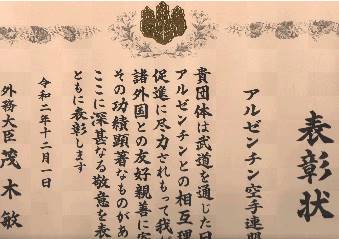 表彰状
アルゼンチン空手連盟
貴団体は武道を通じた日
アルゼンチンとの相互理
促進に尽力されもって我が
諸外国との友好親善に寄
その功績顕著なものがあ
ここに深甚なる敬意を表
ともに表彰します
令和二年十二月一日
外務大臣 茂木敏